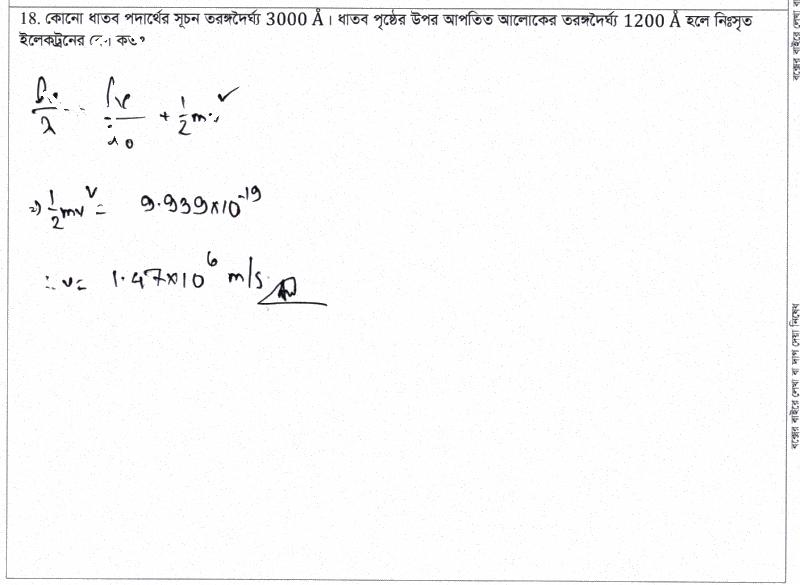 18. কোনো ধাতব পদার্থের সূচন তরঙ্গদৈর্ঘ্য 3000 Å। ধাতব পৃষ্ঠের উপর আপতিত আলোকের তরঙ্গদৈর্ঘ্য 1200 Å হলে নিঃসৃত
ইলেকট্রনের কত?
hc/λ = hc/λ0 + 1/2 mv²
⇒ 1/2 mv² = 9.939×10^-19
∴ v = 1.47×10^6 m/s
বক্সের বাইরে লেখা বা দাগ দেয়া নিষেধ
বক্সের বাইরে লেখা বা